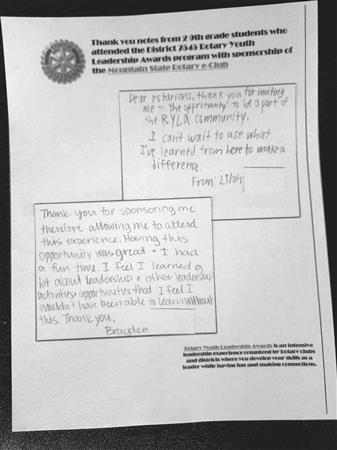 Thank you notes from 2 9th grade students who
attended the District 7545 Rotary Youth
Leadership Awards program with sponsorship of
the Mountain State Rotary e-Club
Dear rotarians, thank you for inviting
me to the opportunity to be a part of
the RYLA community.
I can't wait to use what
I've learned from here to make a
difference.
From: Lilah
Thank you for sponsoring me
therefore allowing me to attend
this experience. Having this
opportunity was great + I had
a fun time. I feel I learned a
lot about leadership + other leadership
activities + opportunities that I feel I
wouldn't have been able to learn without
this. Thank you,
Brayden
Rotary Youth Leadership Awards is an intensive
leadership experience organized by Rotary clubs
and districts where you develop your skills as a
leader while having fun and making connections.